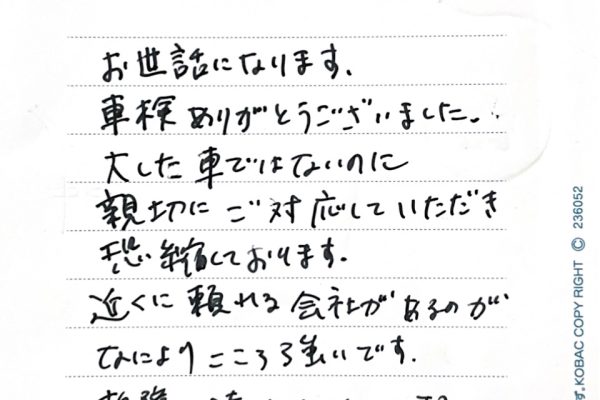 お世話になります。
車検ありがとうございました。
大した車ではないのに
親切にご対応していただき
恐縮しております。
近くに頼れる会社があるのが
なによりこころ強いです。
す。KOBAC COPY RIGHT © 236052